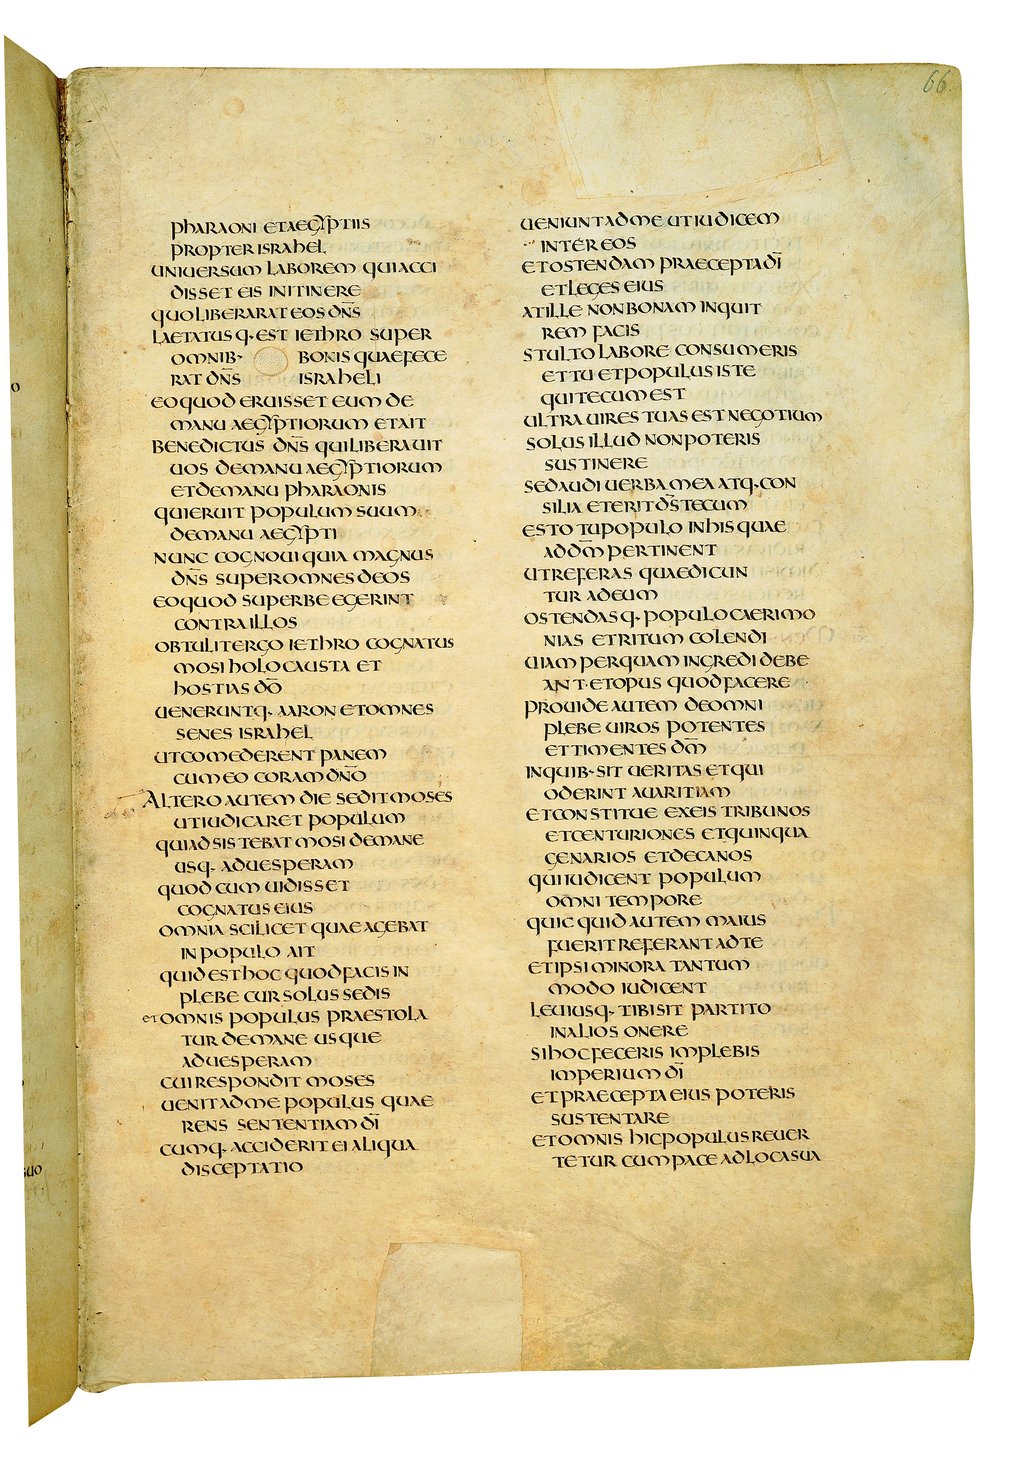 66.
PHARAONI ETAEGYPTIIS
PROPTER ISRAHEL
UNIUERSUM LABOREM QUI ACCI
DISSET EIS IN ITINERE
QUO LIBERARAT EOS DN̄S
LAETATUSQ· EST IETHRO SUPER
OMNIB· BONIS QUAE FECE
RAT DN̄S ISRAHELI
EO QUOD ERUISSET EUM DE
MANU AEGYPTIORUM ET AIT
BENEDICTUS DN̄S QUI LIBERAUIT
UOS DE MANU AEGYPTIORUM
ET DE MANU PHARAONIS
QUI ERUIT POPULUM SUUM
DE MANU AEGYPTI
NUNC COGNOUI QUIA MAGNUS
DN̄S SUPER OMNES DEOS
EO QUOD SUPERBE EGERINT
CONTRA ILLOS
OBTULIT ERGO IETHRO COGNATUS
MOSI HOLOCAUSTA ET
HOSTIAS DŌ
UENERUNTQ· AARON ET OMNES
SENES ISRAHEL
UT COMEDERENT PANEM
CUM EO CORAM DN̄O
ALTERO AUTEM DIE SEDIT MOSES
UT IUDICARET POPULUM
QUI ADSISTEBAT MOSI DE MANE
USQ· AD UESPERAM
QUOD CUM UIDISSET
COGNATUS EIUS
OMNIA SCILICET QUAE AGEBAT
IN POPULO AIT
QUID EST HOC QUOD FACIS IN
PLEBE CUR SOLUS SEDIS
ET OMNIS POPULUS PRAESTOLA
TUR DE MANE USQUE
AD UESPERAM
CUI RESPONDIT MOSES
UENIT AD ME POPULUS QUAE
RENS SENTENTIAM DĪ
CUMQ· ACCIDERIT EI ALIQUA
DISCEPTATIO
UENIUNT AD ME UT IUDICEM
INTER EOS
ET OSTENDAM PRAECEPTA DĪ
ET LEGES EIUS
AT ILLE NON BONAM INQUIT
REM FACIS
STULTO LABORE CONSUMERIS
ET TU ET POPULUS ISTE
QUI TECUM EST
ULTRA UIRES TUAS EST NEGOTIUM
SOLUS ILLUD NON POTERIS
SUSTINERE
SED AUDI UERBA MEA ATQ· CON
SILIA ET ERIT DS̄ TECUM
ESTO TU POPULO IN HIS QUAE
AD DM̄ PERTINENT
UT REFERAS QUAE DICUN
TUR AD EUM
OSTENDASQ· POPULO CAERIMO
NIAS ET RITUM COLENDI
UIAM PER QUAM INGREDI DEBE
ANT· ET OPUS QUOD FACERE
PROUIDE AUTEM DE OMNI
PLEBE UIROS POTENTES
ET TIMENTES DM̄
IN QUIB· SIT UERITAS ET QUI
ODERINT AUARITIAM
ET CONSTITUE EX EIS TRIBUNOS
ET CENTURIONES ET QUINQUA
GENARIOS ET DECANOS
QUI IUDICENT POPULUM
OMNI TEMPORE
QUICQUID AUTEM MAIUS
FUERIT REFERANT AD TE
ET IPSI MINORA TANTUM
MODO IUDICENT
LEUIUSQ· TIBI SIT PARTITO
IN ALIOS ONERE
SI HOC FECERIS IMPLEBIS
IMPERIUM DĪ
ET PRAECEPTA EIUS POTERIS
SUSTENTARE
ET OMNIS HIC POPULUS REUER
TETUR CUM PACE AD LOCA SUA